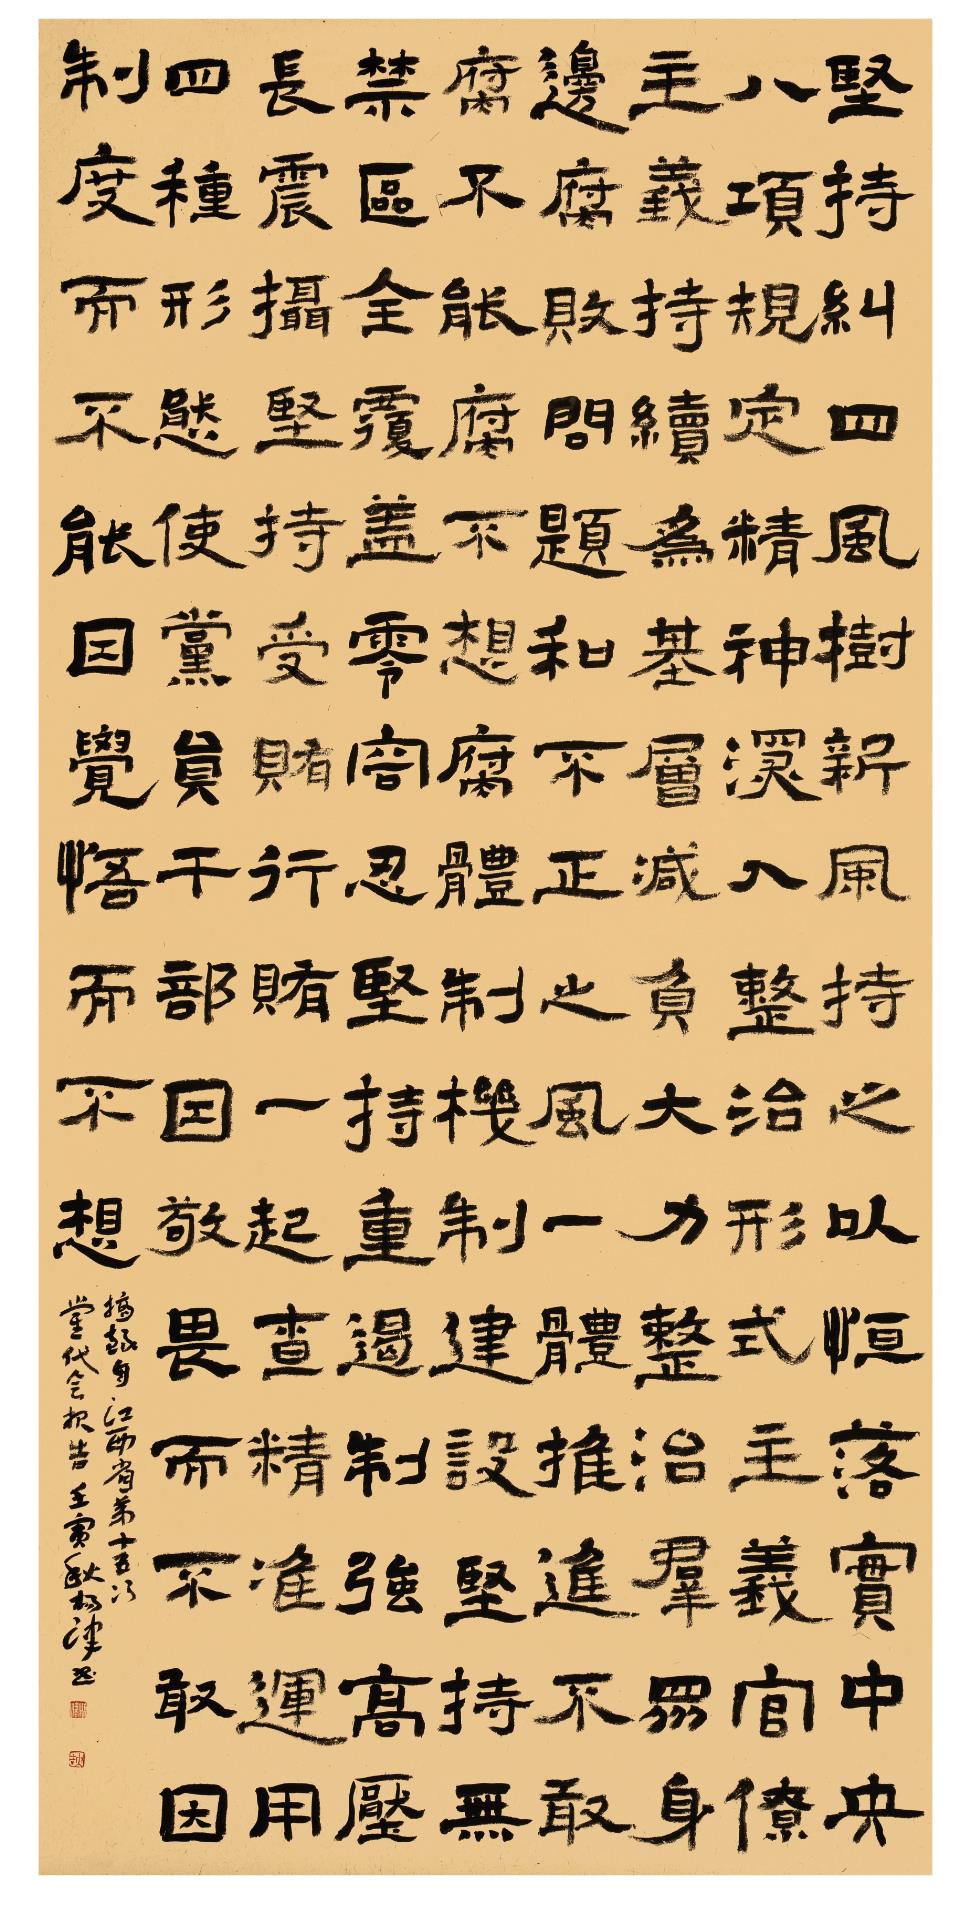 堅持糾四風樹新風持之以恒落實中央
八項規定精神深入整治形式主義官僚
主義持續為基層減負大力整治羣眾身
邊腐敗問題和不正之風一體推進不敢
腐不能腐不想腐體制機制建設堅持無
禁區全覆盖零容忍堅持重遏制強髙壓
長震攝堅持受賄行賄一起查精准運用
四種形態使黨員干部因敬畏而不敢因
制度而不能因覺悟而不想
摘録自江西省第十五次
黨代会报告壬寅秋